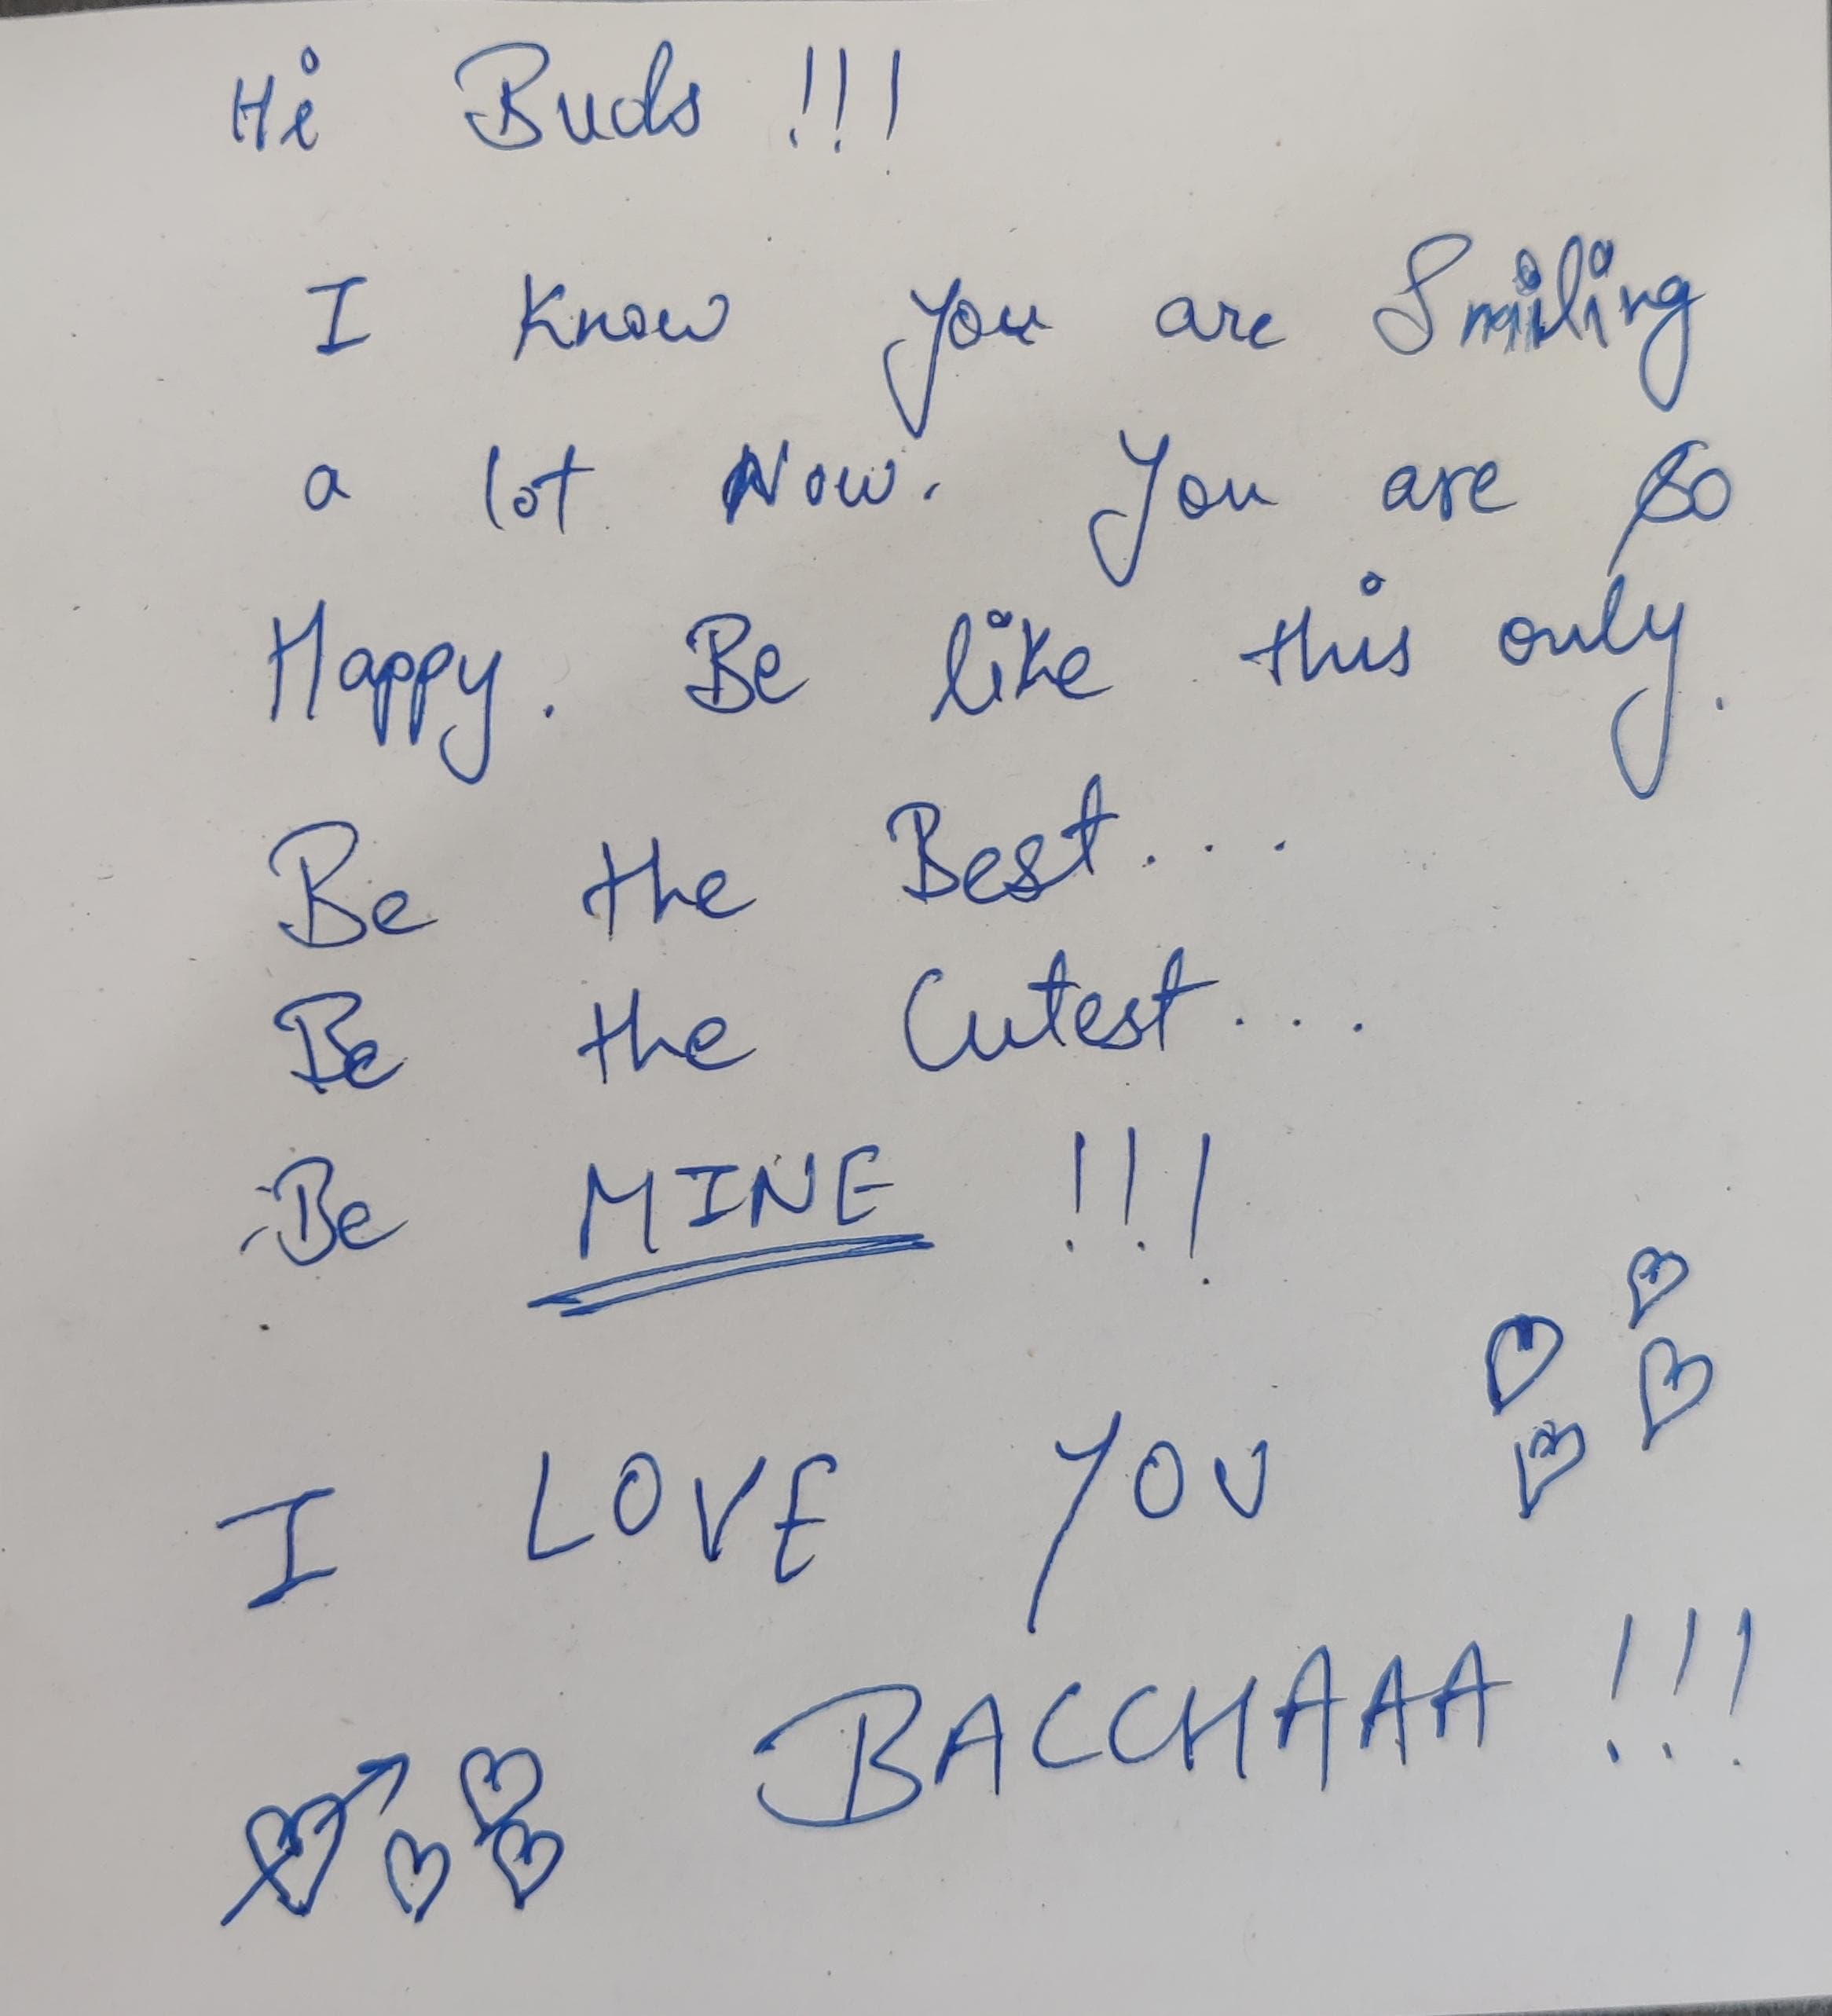 Hi Buds !!!
I Know you are Smiling
a lot Now. You are so
Happy. Be like this only.
Be the Best...
Be the Cutest...
Be MINE !!!
I LOVE YOU
BACCHAAA !!!